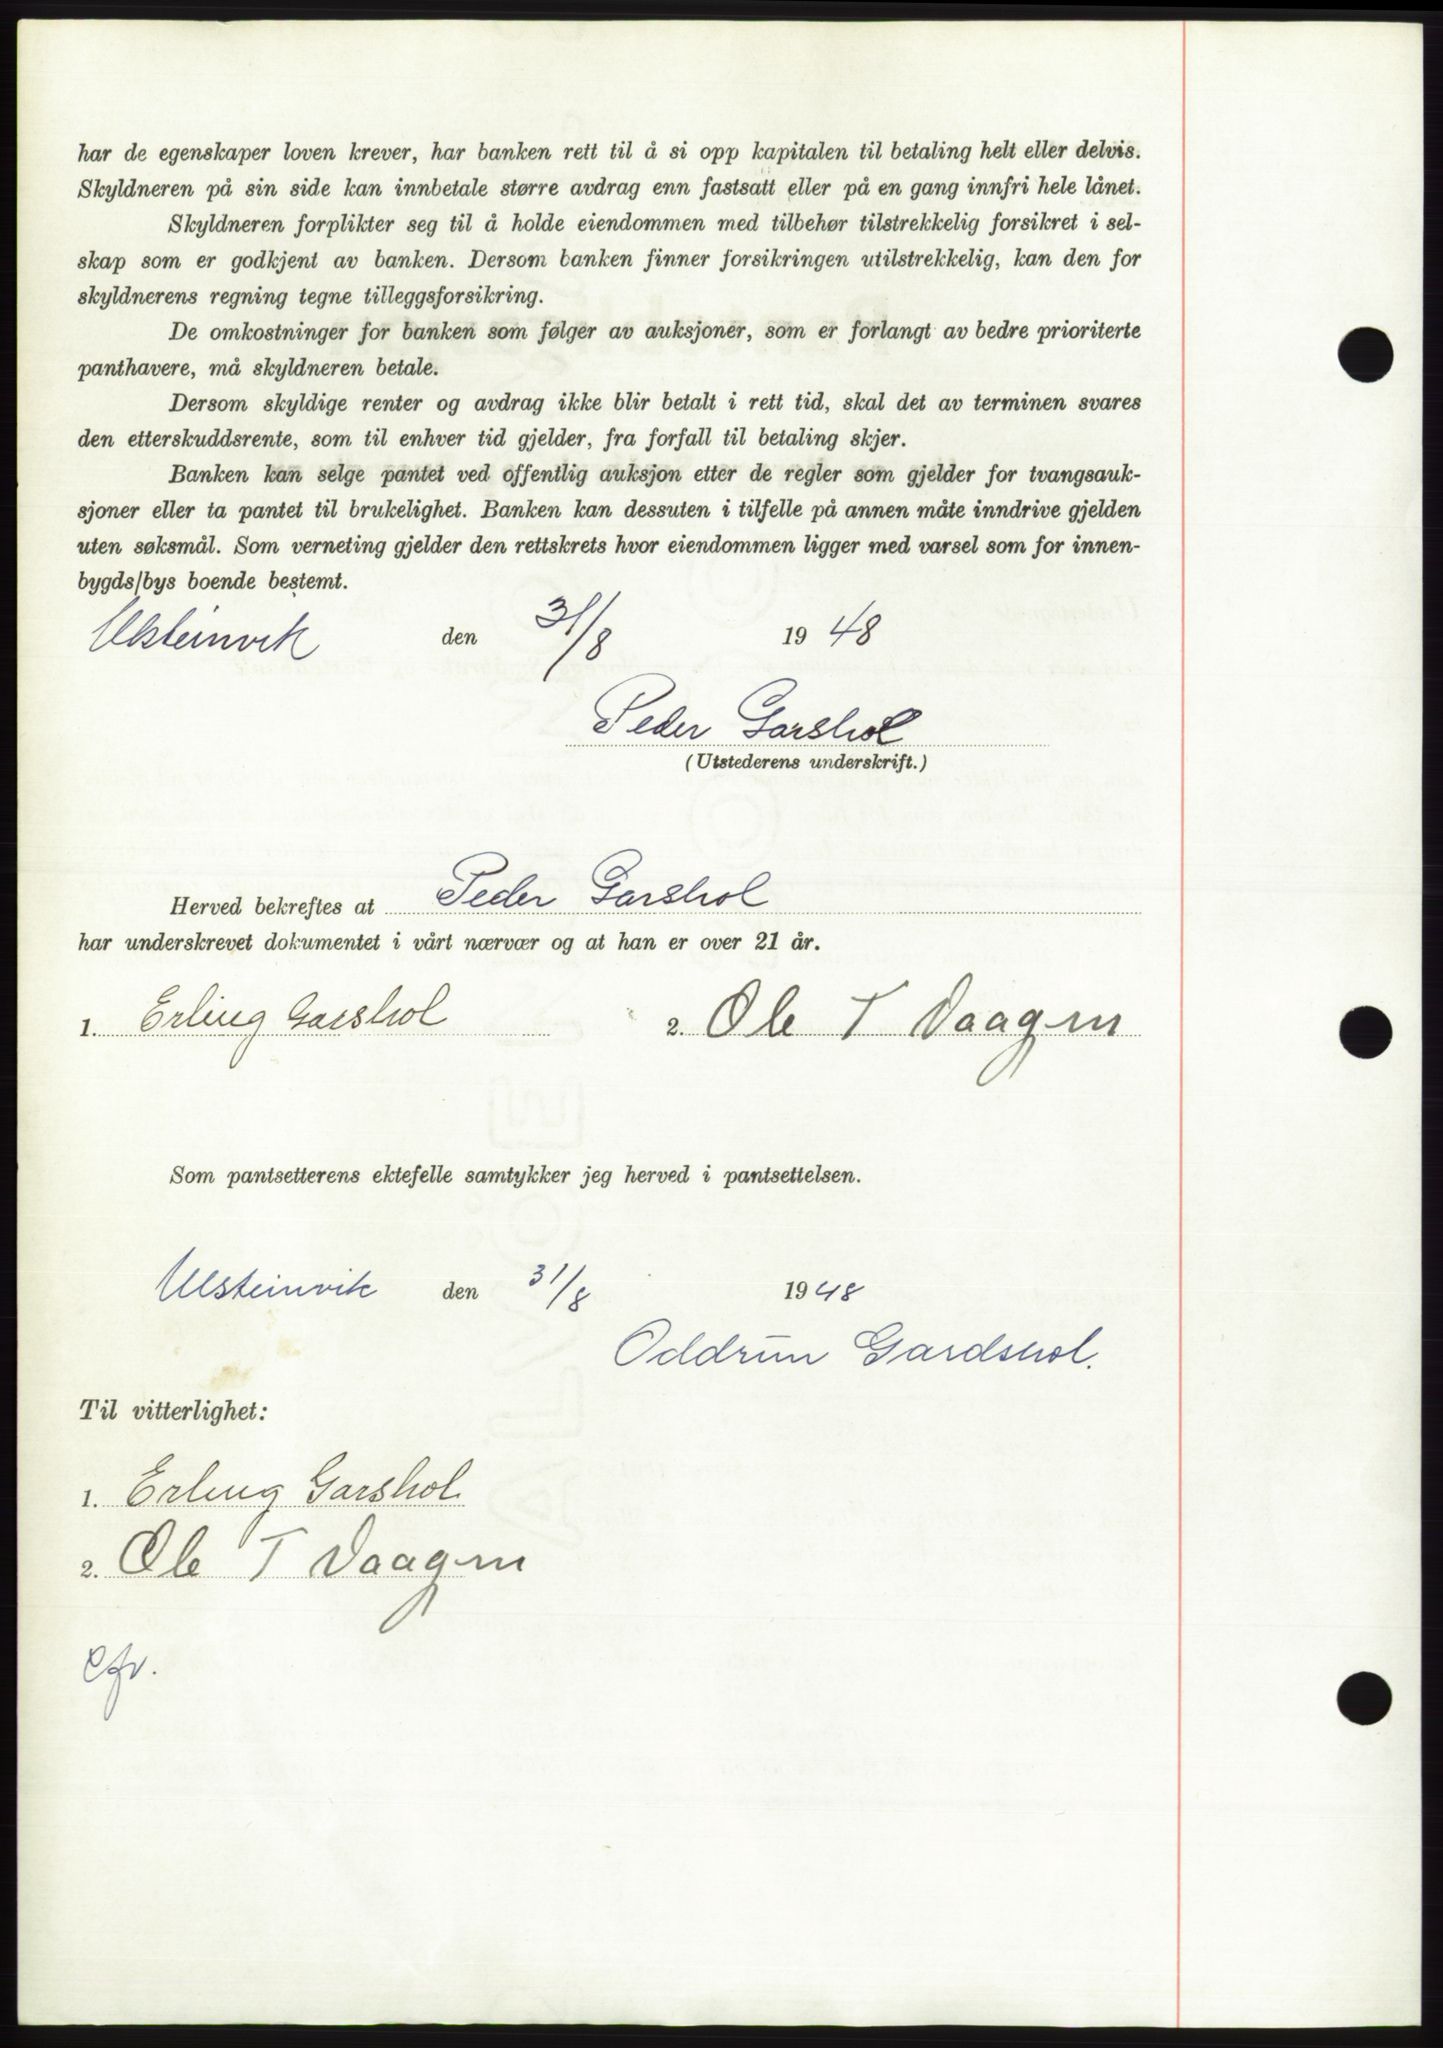 har de egenskaper loven krever, har banken rett til å si opp kapitalen til betaling helt eller delvis.
Skyldneren på sin side kan innbetale større avdrag enn fastsatt eller på en gang innfri hele lånet.
Skyldneren forplikter seg til å holde eiendommen med tilbehør tilstrekkelig forsikret i sel-
skap som er godkjent av banken. Dersom banken finner forsikringen utilstrekkelig, kan den for
skyldnerens regning tegne tilleggsforsikring.
De omkostninger for banken som følger av auksjoner, som er forlangt av bedre prioriterte
panthavere, må skyldneren betale.
Dersom skyldige renter og avdrag ikke blir betalt i rett tid, skal det av terminen svares
den etterskuddsrente, som til enhver tid gjelder, fra forfall til betaling skjer.
Banken kan selge pantet ved offentlig auksjon etter de regler som gjelder for tvangsauk-
sjoner eller ta pantet til brukelighet. Banken kan dessuten i tilfelle på annen måte inndrive gjelden
uten søksmål. Som verneting gjelder den rettskrets hvor eiendommen ligger med varsel som for innen-
bygds/bys boende bestemt.
Ulsteinvik den 31/8 1948
Peder Garshol
(Utstederens underskrift.)
Herved bekreftes at Peder Garshol
har underskrevet dokumentet i vårt nærvær og at han er over 21 år.
1. Erling Garshol 2. Ole T Vaagen
Som pantsetterens ektefelle samtykker jeg herved i pantsettelsen.
Ulsteinvik den 31/8 1948
Oddrun Gardshol.
Til vitterlighet:
1. Erling Garshol
2. Ole T Vaagen